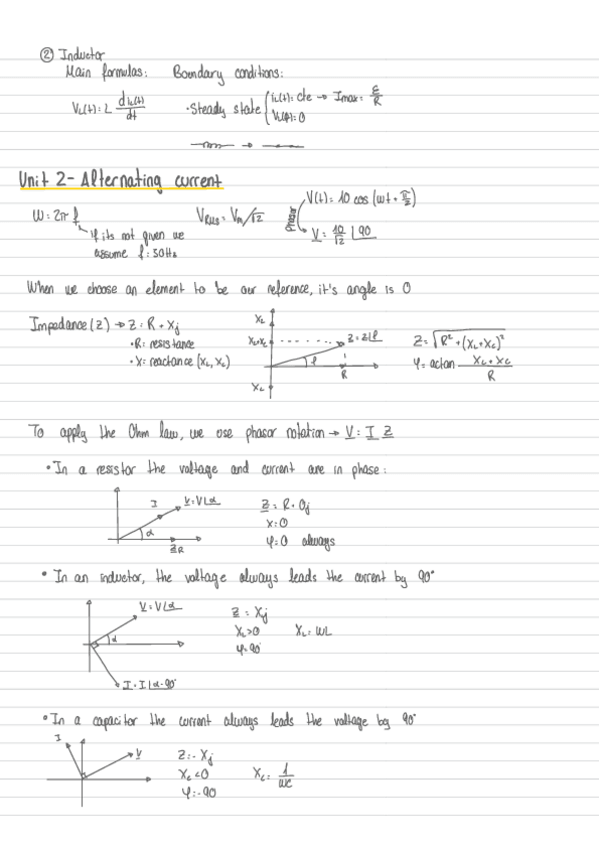 ② Inductor
Main formulas: Boundary conditions:
V_L(t) = L di_L(t)/dt · Steady state { i_L(t) = cte → I_max = ε/R
V_L(t) = 0
Unit 2 - Alternating current
W = 2π f V_RMS = V_M/√2 phasor V(t) = 10 cos (wt + π/2)
V = 10/√2 ∟90
if its not given we
assume f = 50Hz
When we choose an element to be our reference, it's angle is 0
Impedance (Z) → Z = R + Xj
• R = resistance
• X = reactance (X_L, X_C)
X_L
X_L+X_C
Z = Z∟φ
φ
R
X_C
Z = √R² + (X_L + X_C)²
φ = actan X_L + X_C / R
To apply the Ohm law, we use phasor notation → V = I Z
• In a resistor the voltage and current are in phase:
I V = V∟α
α
Z_R
Z = R + 0j
X = 0
φ = 0 always
• In an inductor, the voltage always leads the current by 90°
V = V∟α
α
I = I∟α-90°
Z = Xj
X_L > 0 X_L = WL
φ = 90°
• In a capacitor the current always leads the voltage by 90°
I
V
Z = - Xj
X_C < 0 X_C = 1/WC
φ = -90